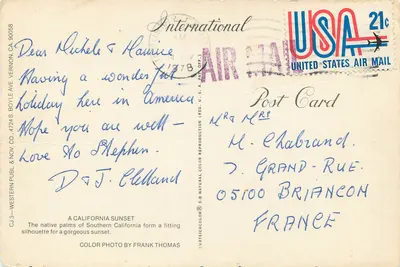 International
Dear Michele & Maurice
Having a wonderful
holiday here in America
Hope you are well -
Love to Stephen.
D & J. Clelland
1978
AIR MAIL
USA 21¢
UNITED STATES AIR MAIL
Post Card
Mr & Mrs
M. Chabrand.
7. GRAND-RUE.
05100 BRIANCON
FRANCE
A CALIFORNIA SUNSET
The native palms of Southern California form a fitting
silhouette for a gorgeous sunset.
COLOR PHOTO BY FRANK THOMAS
CJ3—WESTERN PUBL. & NOV. CO., 4724 S. BOYLE AVE. VERNON, CA. 90058